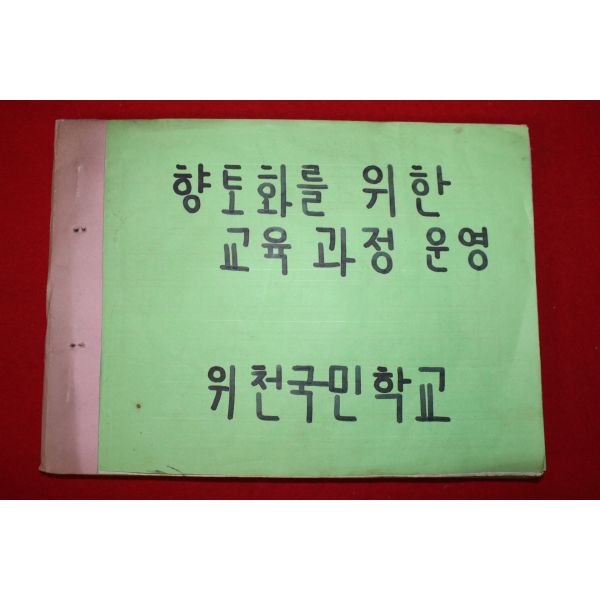 향토화를 위한
교육 과정 운영
위천국민학교